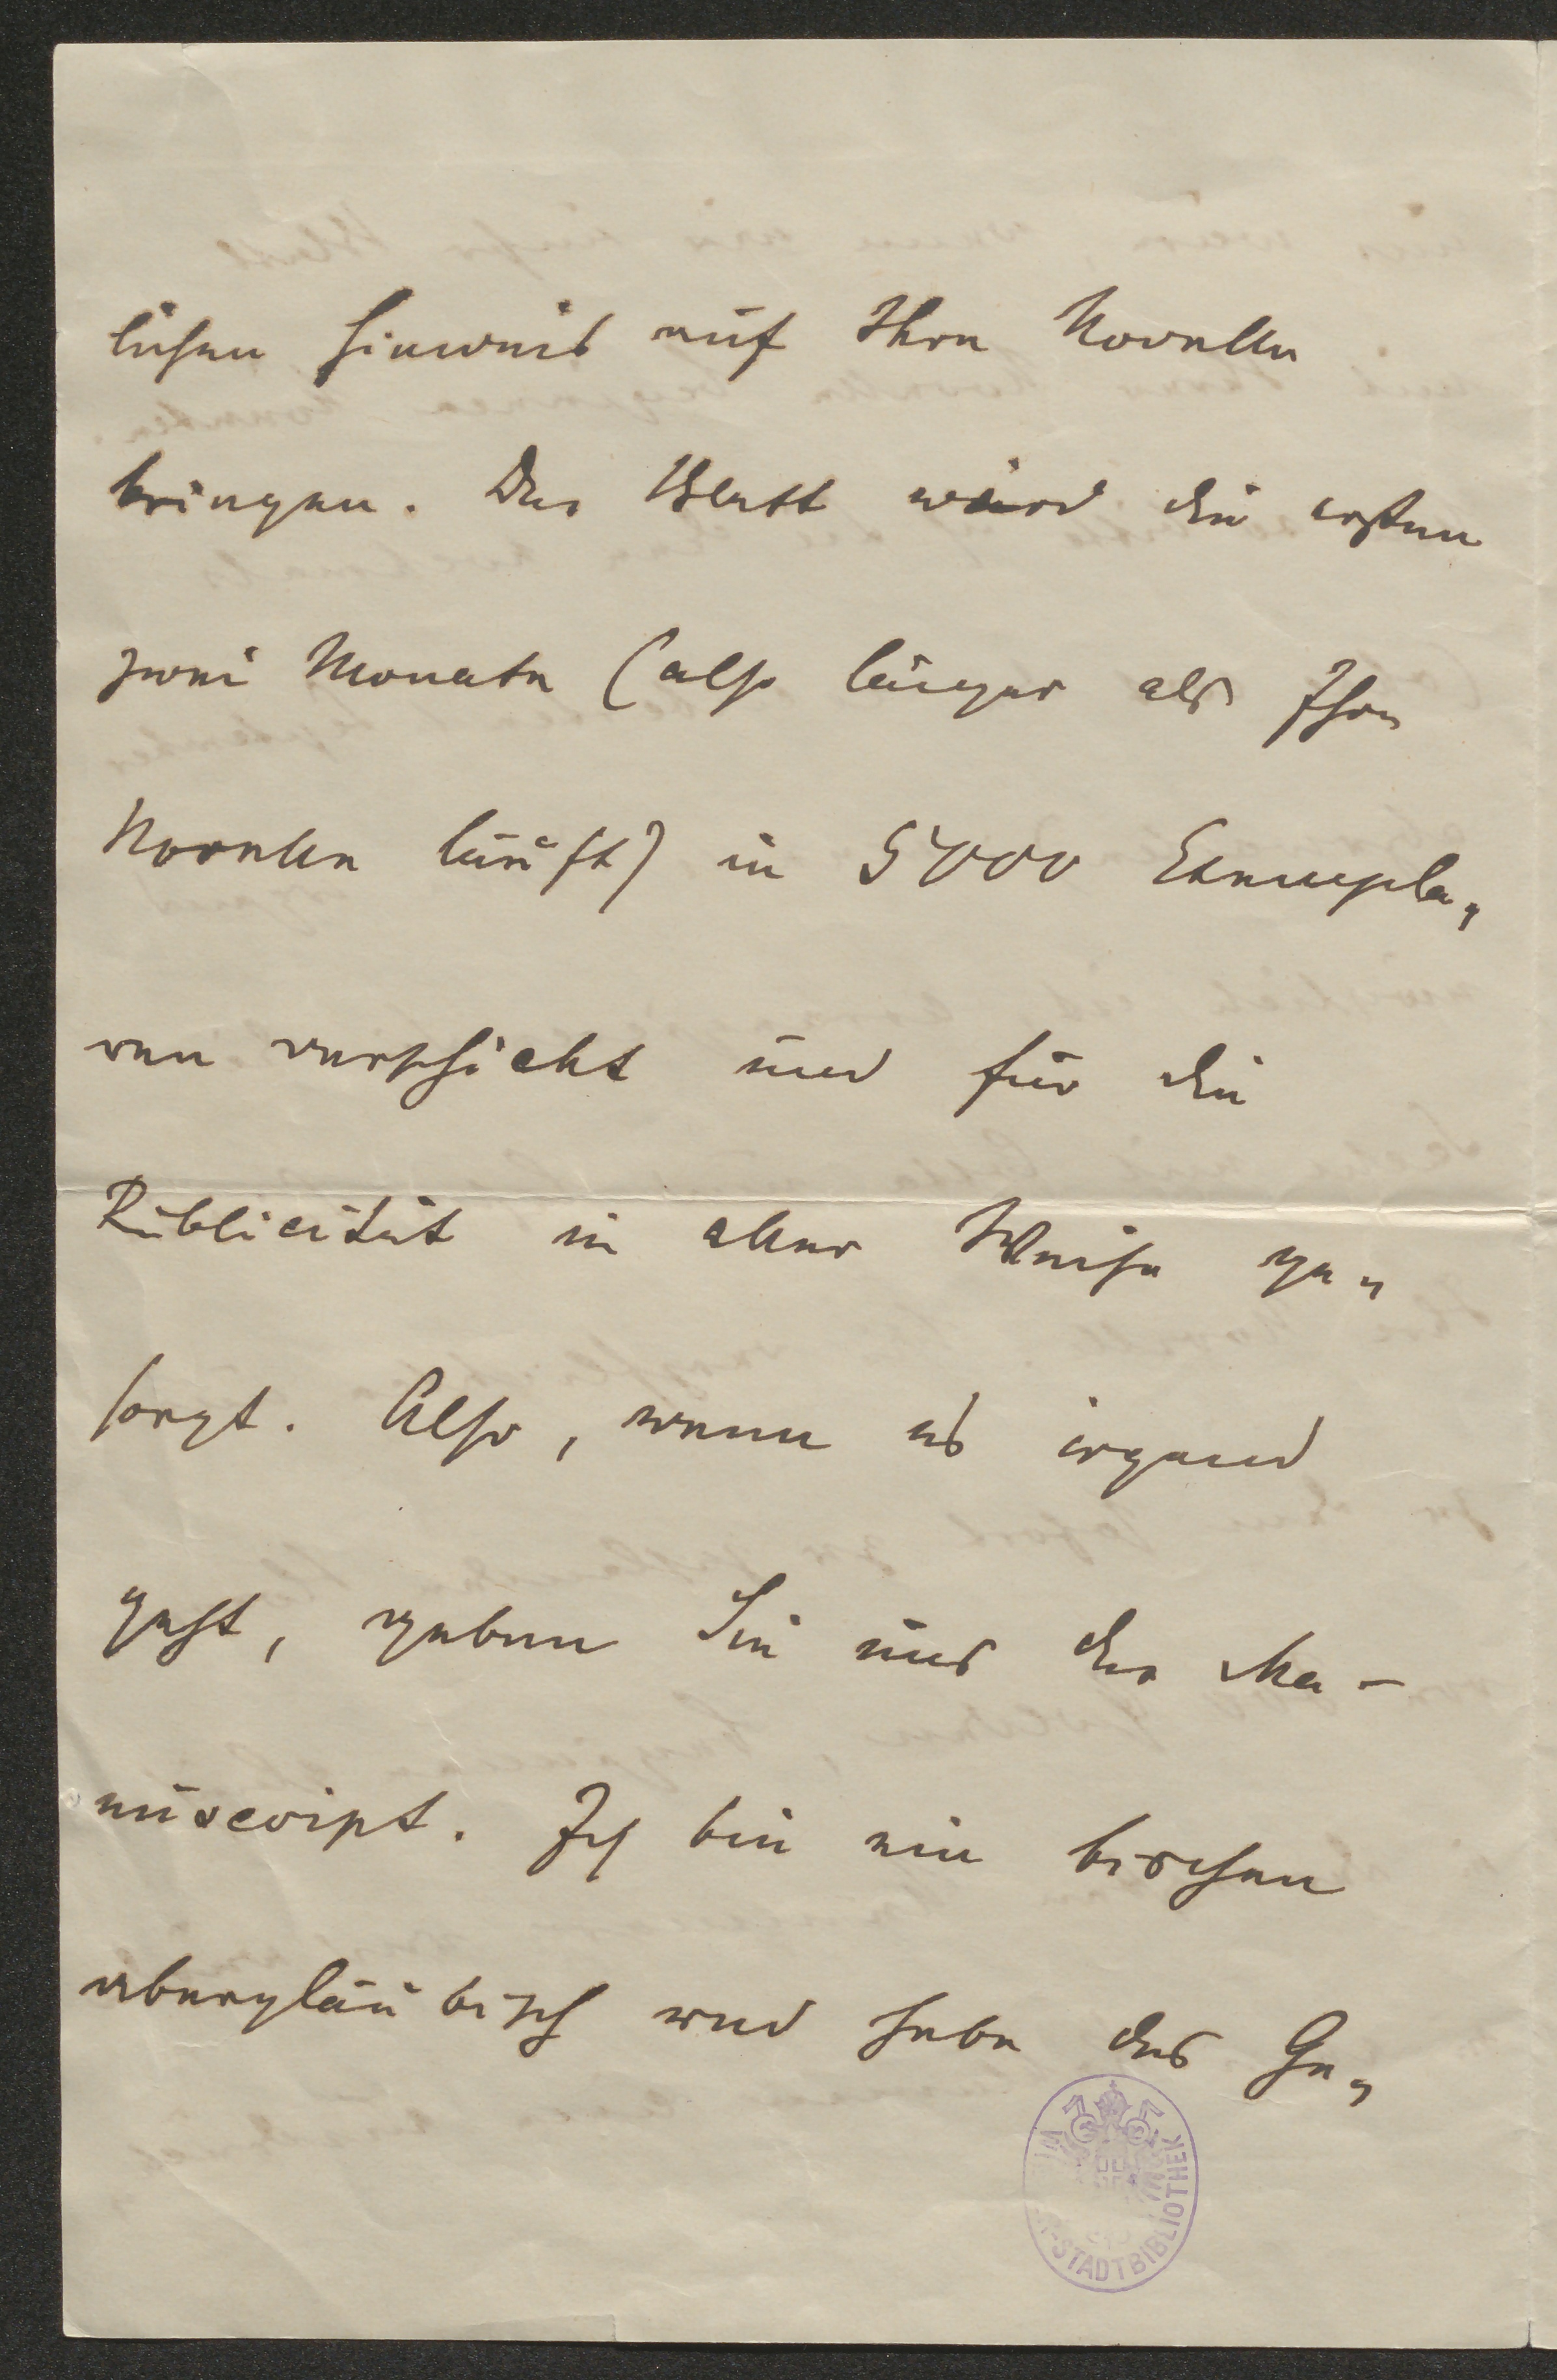 lichen Hinweis auf Ihre Novelle
bringen. Das Blatt wird die ersten
zwei Monate (also länger als Ihre
Novelle läuft) in 5000 Exempla„
ren verschickt und für die
Publicität in aller Weise ge„
sorgt. Also, wenn es irgend
geht, geben Sie uns das Ma-
nuscript. Ich bin ein bischen
abergläubisch und habe das Ge„
STADTBIBLIOTHEK